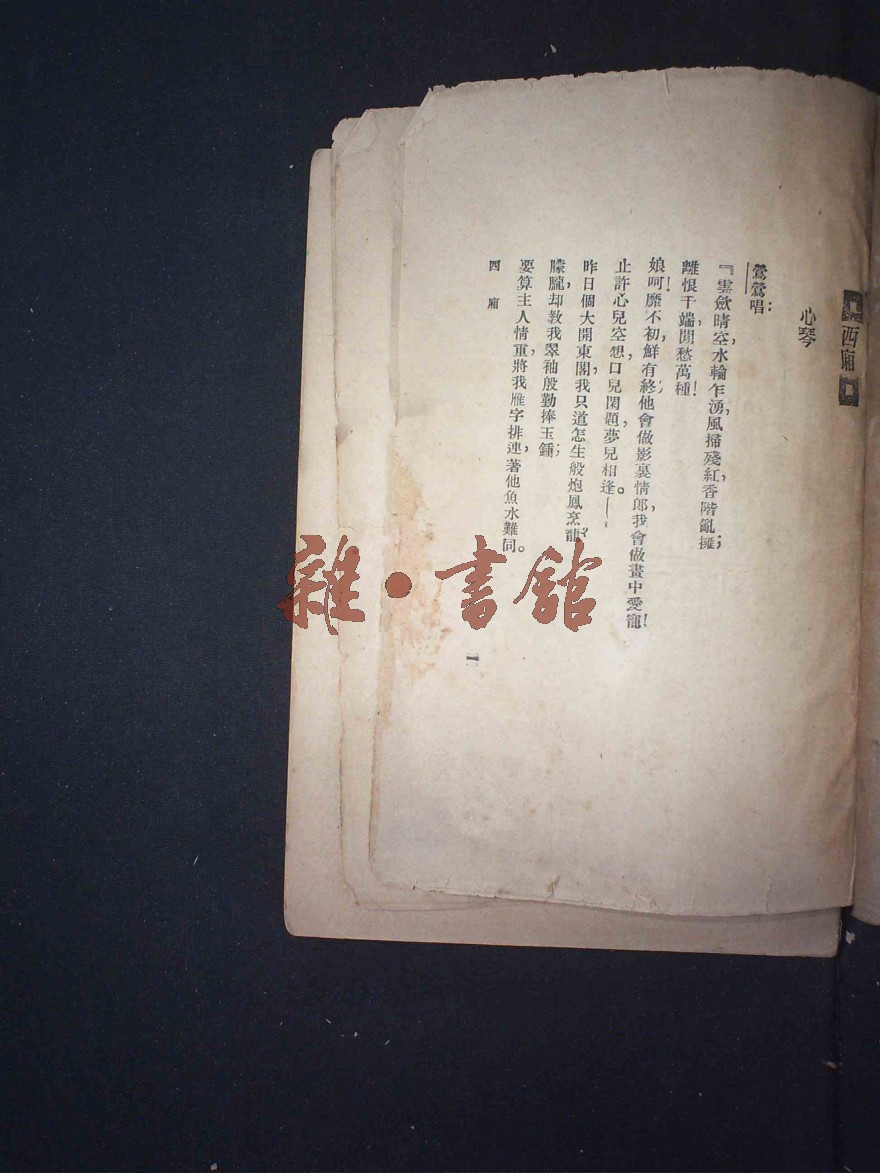 西廂
心琴
鶯鶯唱：
『雲歛晴空，水輪乍湧，風掃殘紅，香階亂擁；
離恨千端，閒愁萬種！
娘呵！靡不初，鮮有終，他會做影裏情郎，我會做畫中愛寵！
止許心兒空想，口兒閑題，夢兒相逢。——
昨日個大開東閣，我只道怎生般炮鳳烹龍？
朦朧，却教我翠袖殷勤捧玉鍾；
要算主人情重，將我雁字排連，著他魚水難同。
西廂
一
雜·書館